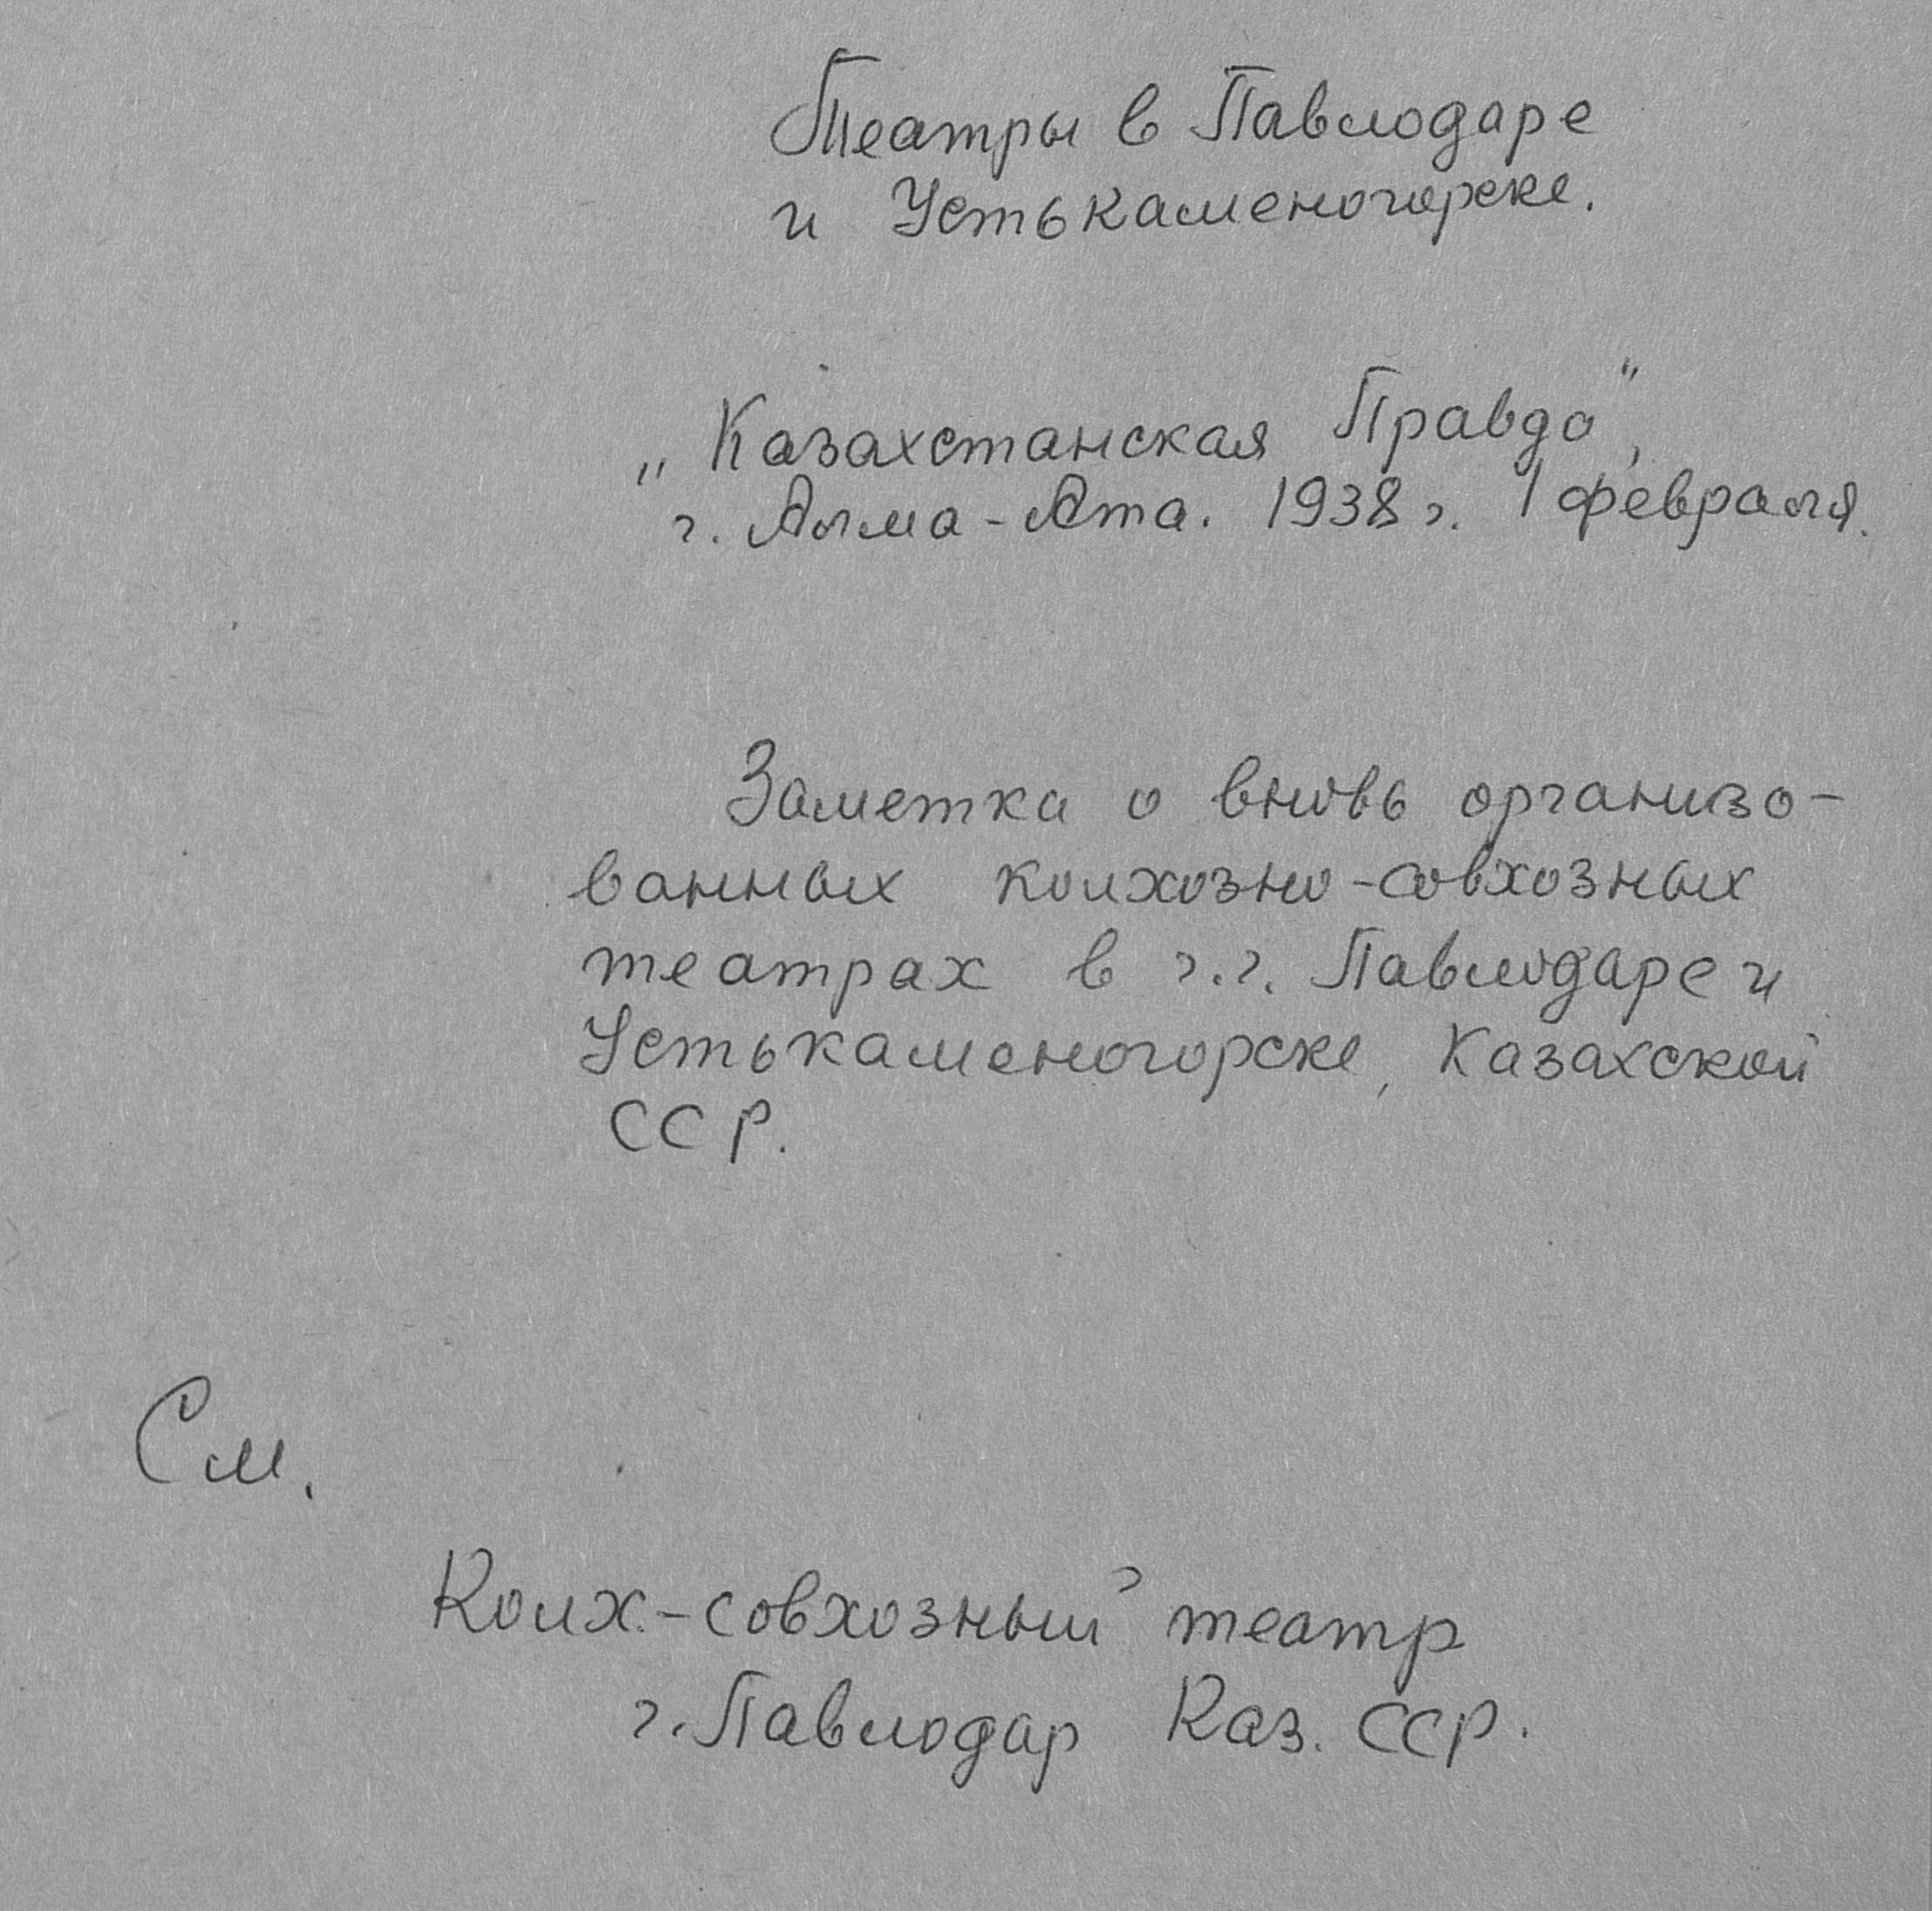 Театры в Павлодаре
и Устькаменогорске.
„Казахстанская Правда",
г. Алма-Ата. 1938 г. 1 февраля.
Заметка о вновь организо-
ванных колхозно-совхозных
театрах в г.г. Павлодаре и
Устькаменогорске, Казахской
ССР.
См.
Колх.-совхозный театр
г. Павлодар Каз. ССР.